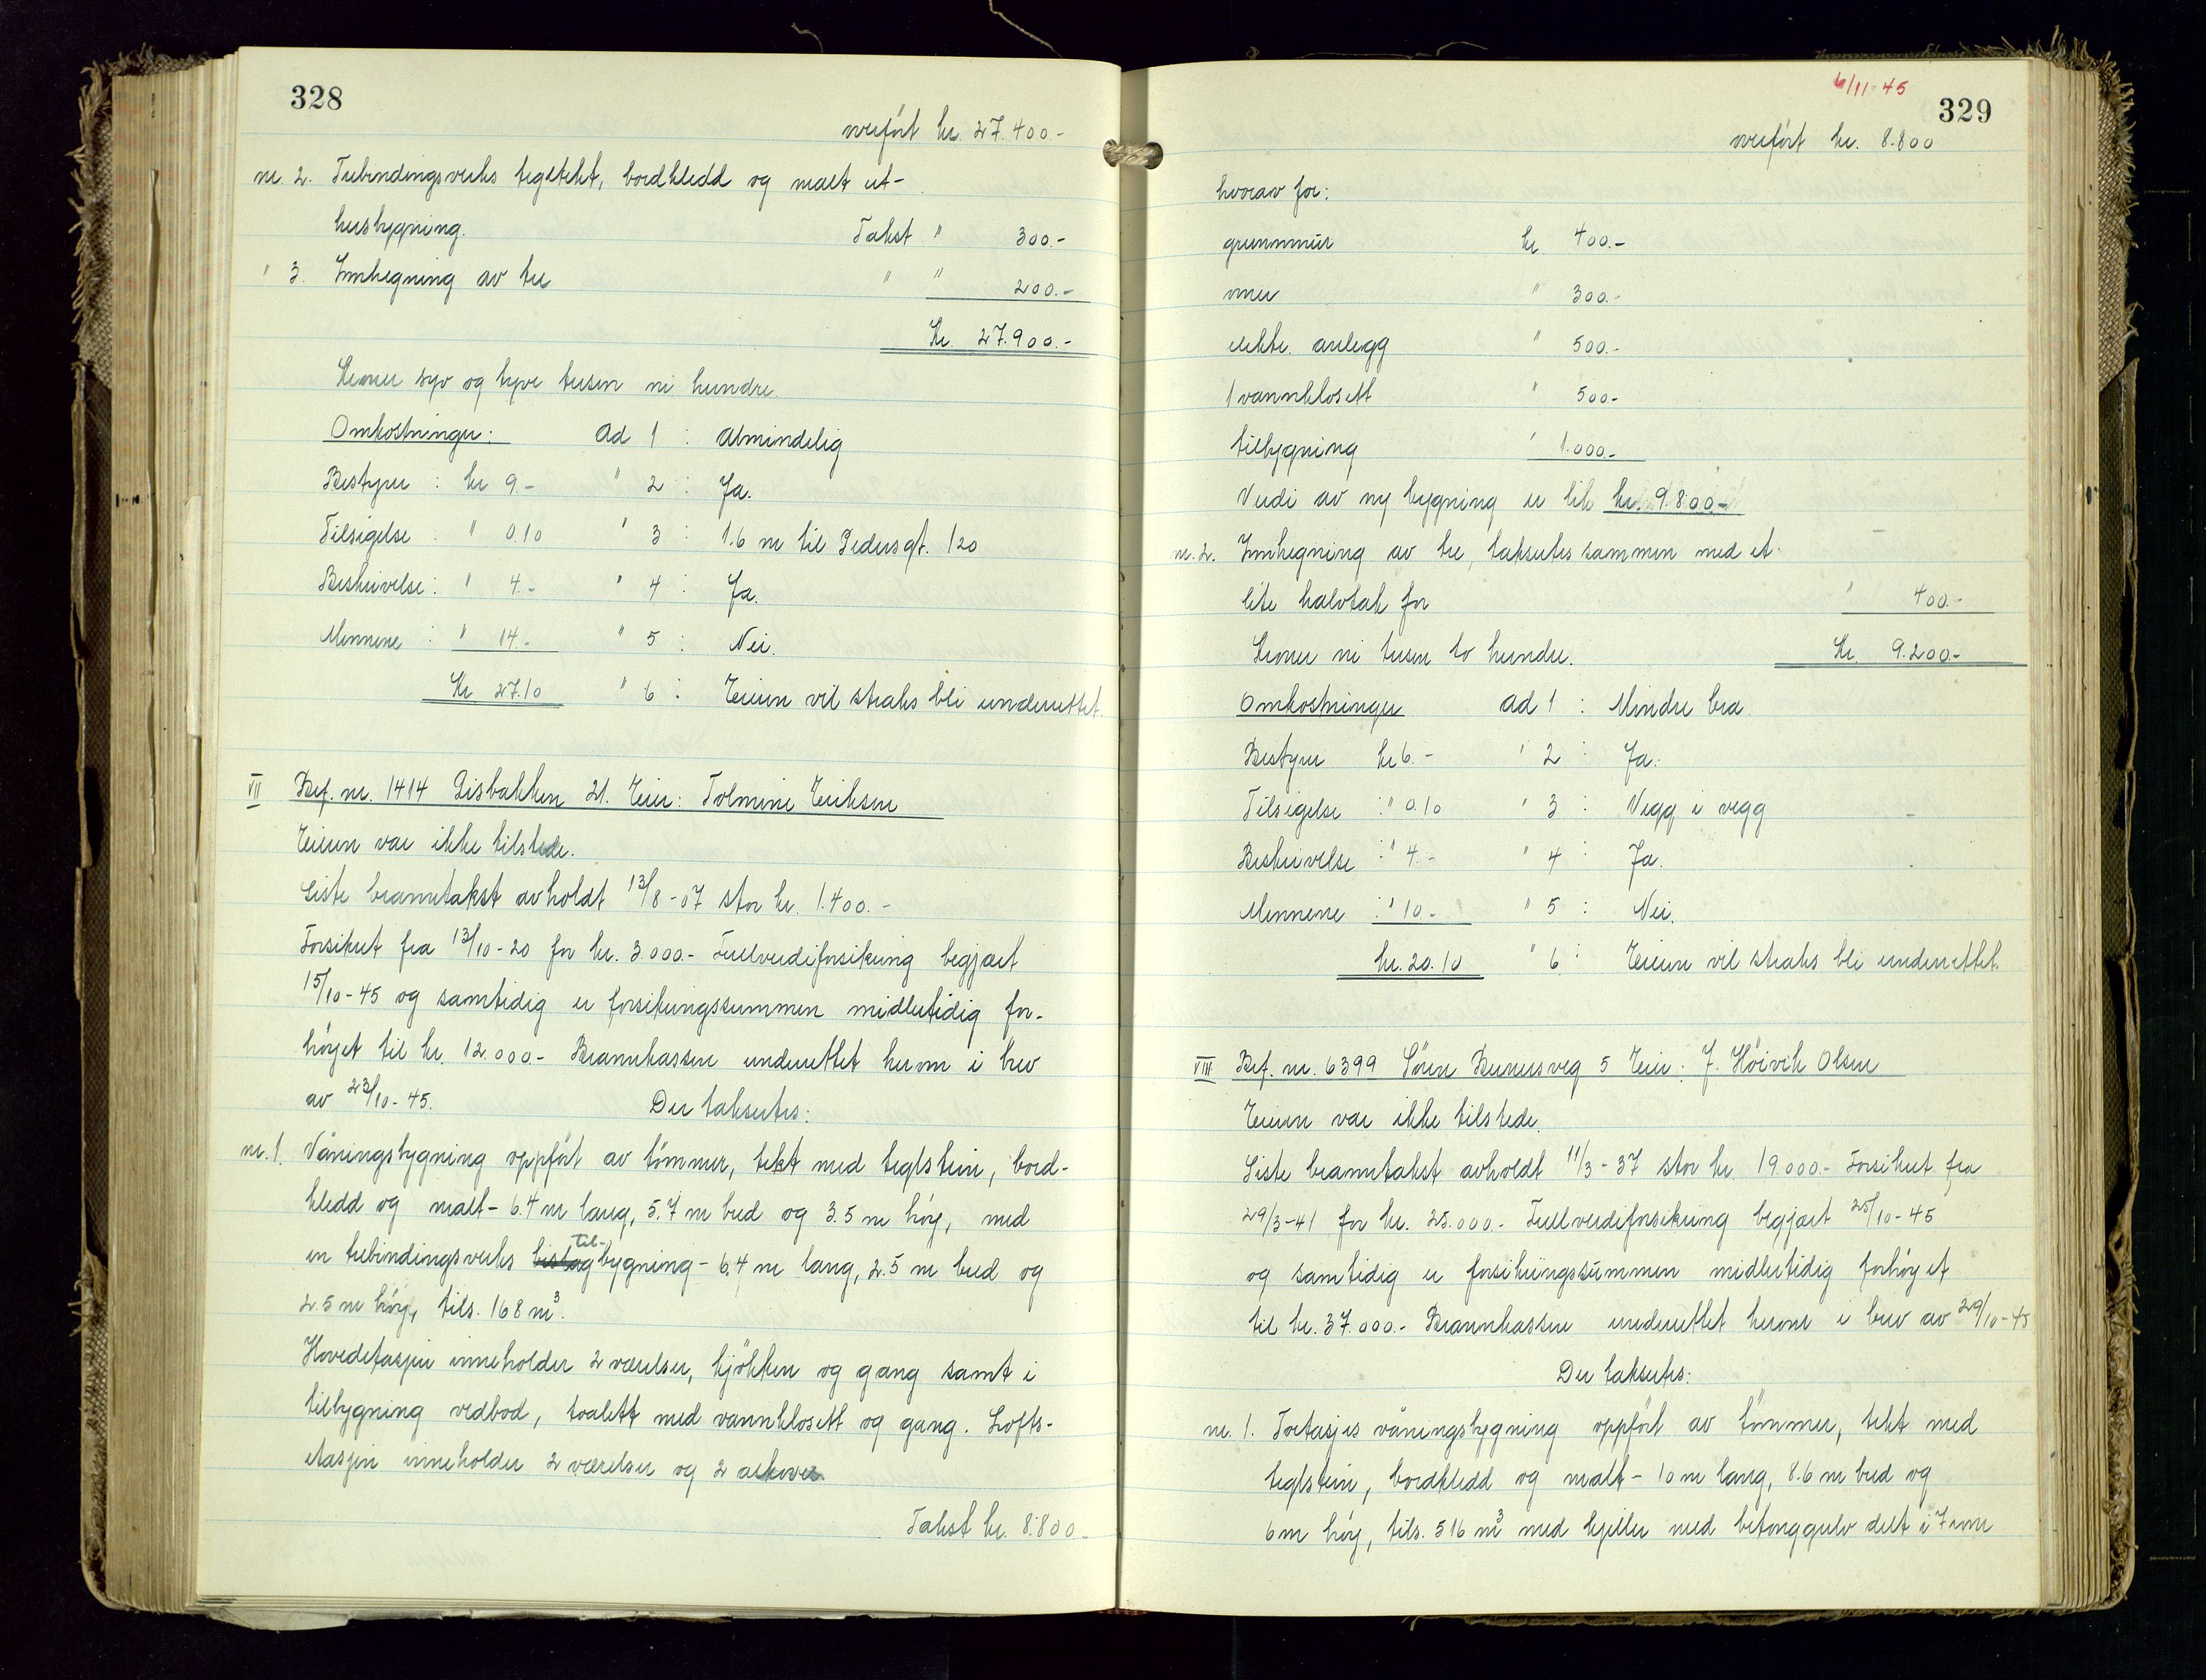 328
overført kr. 27.400.-
nr. 2. Trebindingsverks tegltekt, bordkledd og malt ut-
husbygning. Takst " 300.-
" 3. Innhegning av tre " " 200.-
Kr. 27.900.-
Kroner syv og tyve tusen ni hundre.
Omkostninger: ad 1 : Almindelig
Bestyrer : kr 9.- " 2 : Ja.
Tilsigelse : " 0.10 " 3 : 1.6 m til Pedersgt. 120
Beskrivelse : " 4.- " 4 : Ja.
Mennene : " 14.- " 5 : Nei.
Kr 27.10 " 6 : Eieren vil straks bli underrettet
VII Brf. nr. 1414 Lisbakken 21. Eier: Tolmine Eriksen
Eieren var ikke tilstede.
Siste branntakst avholdt 13/8-07 stor kr. 1.400.-
Forsikret fra 13/10-20 for kr. 3.000.- Fullverdiforsikring begjært
15/10-45 og samtidig er forsikringssummen midlertidig for-
høyet til kr. 12.000.- Brannkassen underrettet herom i brev
av 23/10-45. Der takseres:
nr. 1. Våningsbygning oppført av tømmer, tekt med teglstein, bord-
kledd og malt - 6.4 m lang, 5.7 m bred og 3.5 m høy, med
en trebindingsverks bislag til-bygning - 6.4 m lang, 2.5 m bred og
2.5 m høy, tils. 168 m³.
Hovedetasjen inneholder 2 værelser, kjøkken og gang samt i
tilbygning vedbod, toalett med vannklosett og gang. Lofts-
etasjen inneholder 2 værelser og 2 alkover.
Takst kr. 8.800.-
6/11-45
329
overført kr. 8.800
hvorav for:
grunnmur kr 400.-
ovner " 300.-
elektr. anlegg " 500.-
1 vannklosett " 500.-
tilbygning " 1.000.-
Verdi av ny bygning er lik kr. 9.800.-
nr. 2. Innhegning av tre, takseres sammen med et
lite halvtak for " 400.-
Kroner ni tusen to hundre. Kr. 9.200.-
Omkostninger ad 1 : Mindre bra
Bestyrer kr 6.- " 2 : Ja.
Tilsigelse : " 0.10 " 3 : Vegg i vegg
Beskrivelse : " 4.- " 4 : Ja.
Mennene : " 10.- " 5 : Nei.
kr. 20.10 " 6 : Eieren vil straks bli underrettet.
VIII Brf. nr. 6399 Sören Berners veg 5 Eier: J. Höivik Olsen
Eieren var ikke tilstede.
Siste branntakst avholdt 11/3-37 stor kr. 19.000.- Forsikret fra
29/3-41 for kr. 25.000.- Fullverdiforsikring begjært 25/10-45
og samtidig er forsikringssummen midlertidig forhøyet
til kr. 37.000.- Brannkassen underrettet herom i brev av 29/10-45
Der takseres:
nr. 1. Toetasjes våningsbygning oppført av tømmer, tekt med
teglstein, bordkledd og malt - 10 m lang, 8.6 m bred og
6 m høy, tils. 516 m³ med kjeller med betonggulv delt i 7 rom